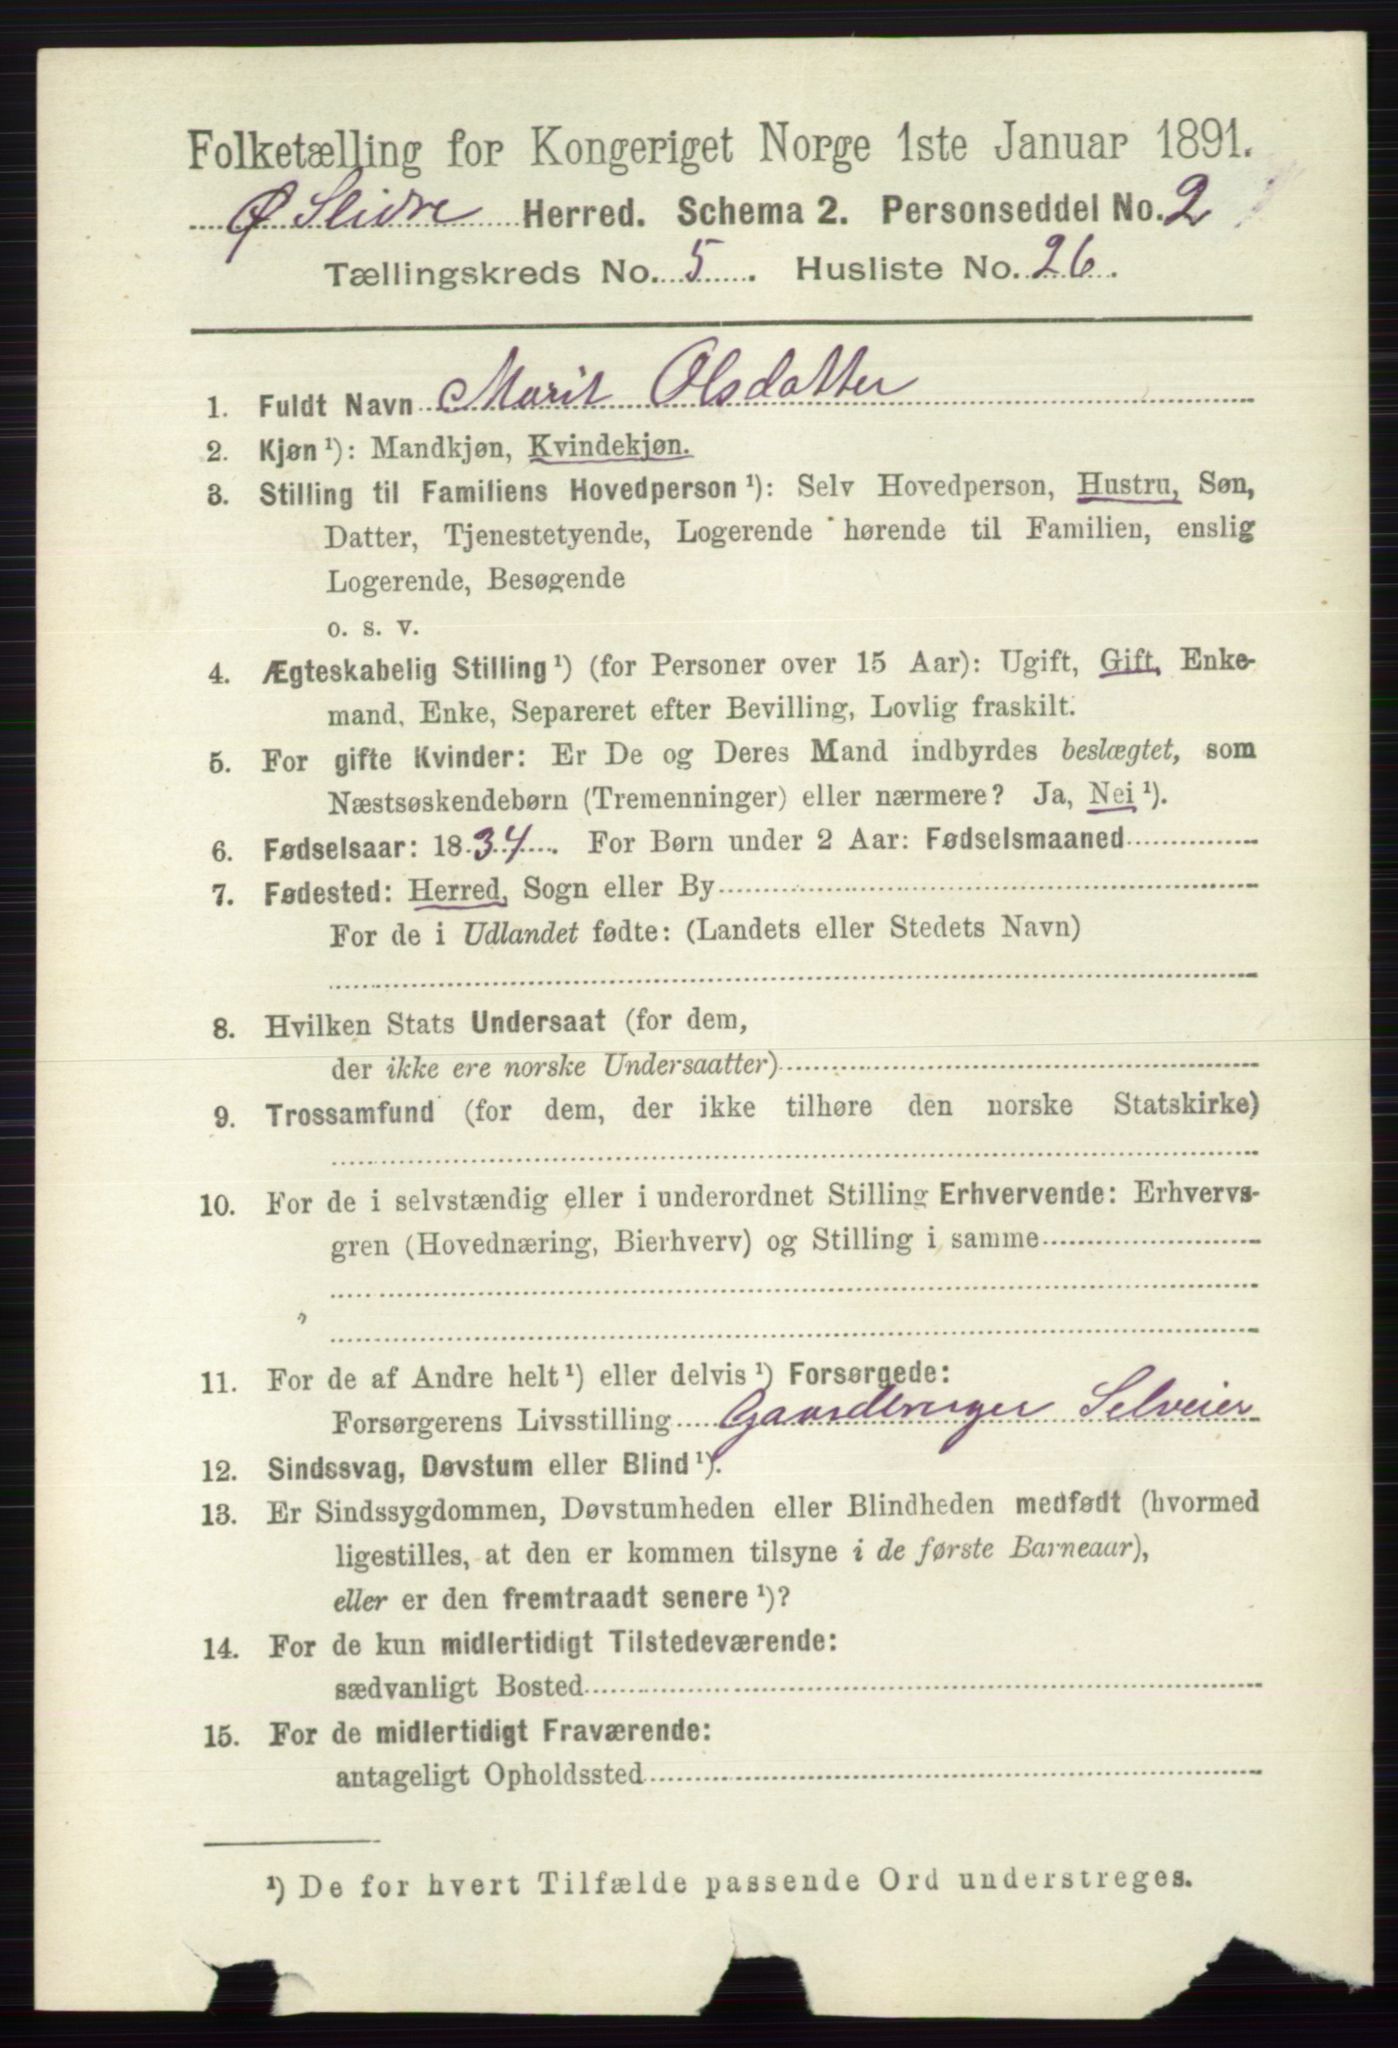 Folketælling for Kongeriget Norge 1ste Januar 1891.
Ø Slidre Herred. Schema 2. Personseddel No. 2
Tællingskreds No. 5. Husliste No. 26.
1. Fuldt Navn Marit Olsdatter
2. Kjøn¹): Mandkjøn, Kvindekjøn.
3. Stilling til Familiens Hovedperson¹): Selv Hovedperson, Hustru, Søn,
Datter, Tjenestetyende, Logerende hørende til Familien, enslig
Logerende, Besøgende
o. s. v.
4. Ægteskabelig Stilling¹) (for Personer over 15 Aar): Ugift, Gift, Enke-
mand, Enke, Separeret efter Bevilling, Lovlig fraskilt.
5. For gifte Kvinder: Er De og Deres Mand indbyrdes beslægtet, som
Næstsøskendebørn (Tremenninger) eller nærmere? Ja, Nei¹).
6. Fødselsaar: 1834. For Børn under 2 Aar: Fødselsmaaned
7. Fødested: Herred, Sogn eller By
For de i Udlandet fødte: (Landets eller Stedets Navn)
8. Hvilken Stats Undersaat (for dem,
der ikke ere norske Undersaatter)
9. Trossamfund (for dem, der ikke tilhøre den norske Statskirke)
10. For de i selvstændig eller i underordnet Stilling Erhvervende: Erhvervs-
gren (Hovednæring, Bierhverv) og Stilling i samme
11. For de af Andre helt¹) eller delvis¹) Forsørgede:
Forsørgerens Livsstilling Gaardbruger Selveier
12. Sindssvag, Døvstum eller Blind¹).
13. Er Sindssygdommen, Døvstumheden eller Blindheden medfødt (hvormed
ligestilles, at den er kommen tilsyne i de første Barneaar),
eller er den fremtraadt senere¹)?
14. For de kun midlertidigt Tilstedeværende:
sædvanligt Bosted
15. For de midlertidigt Fraværende:
antageligt Opholdssted
¹) De for hvert Tilfælde passende Ord understreges.